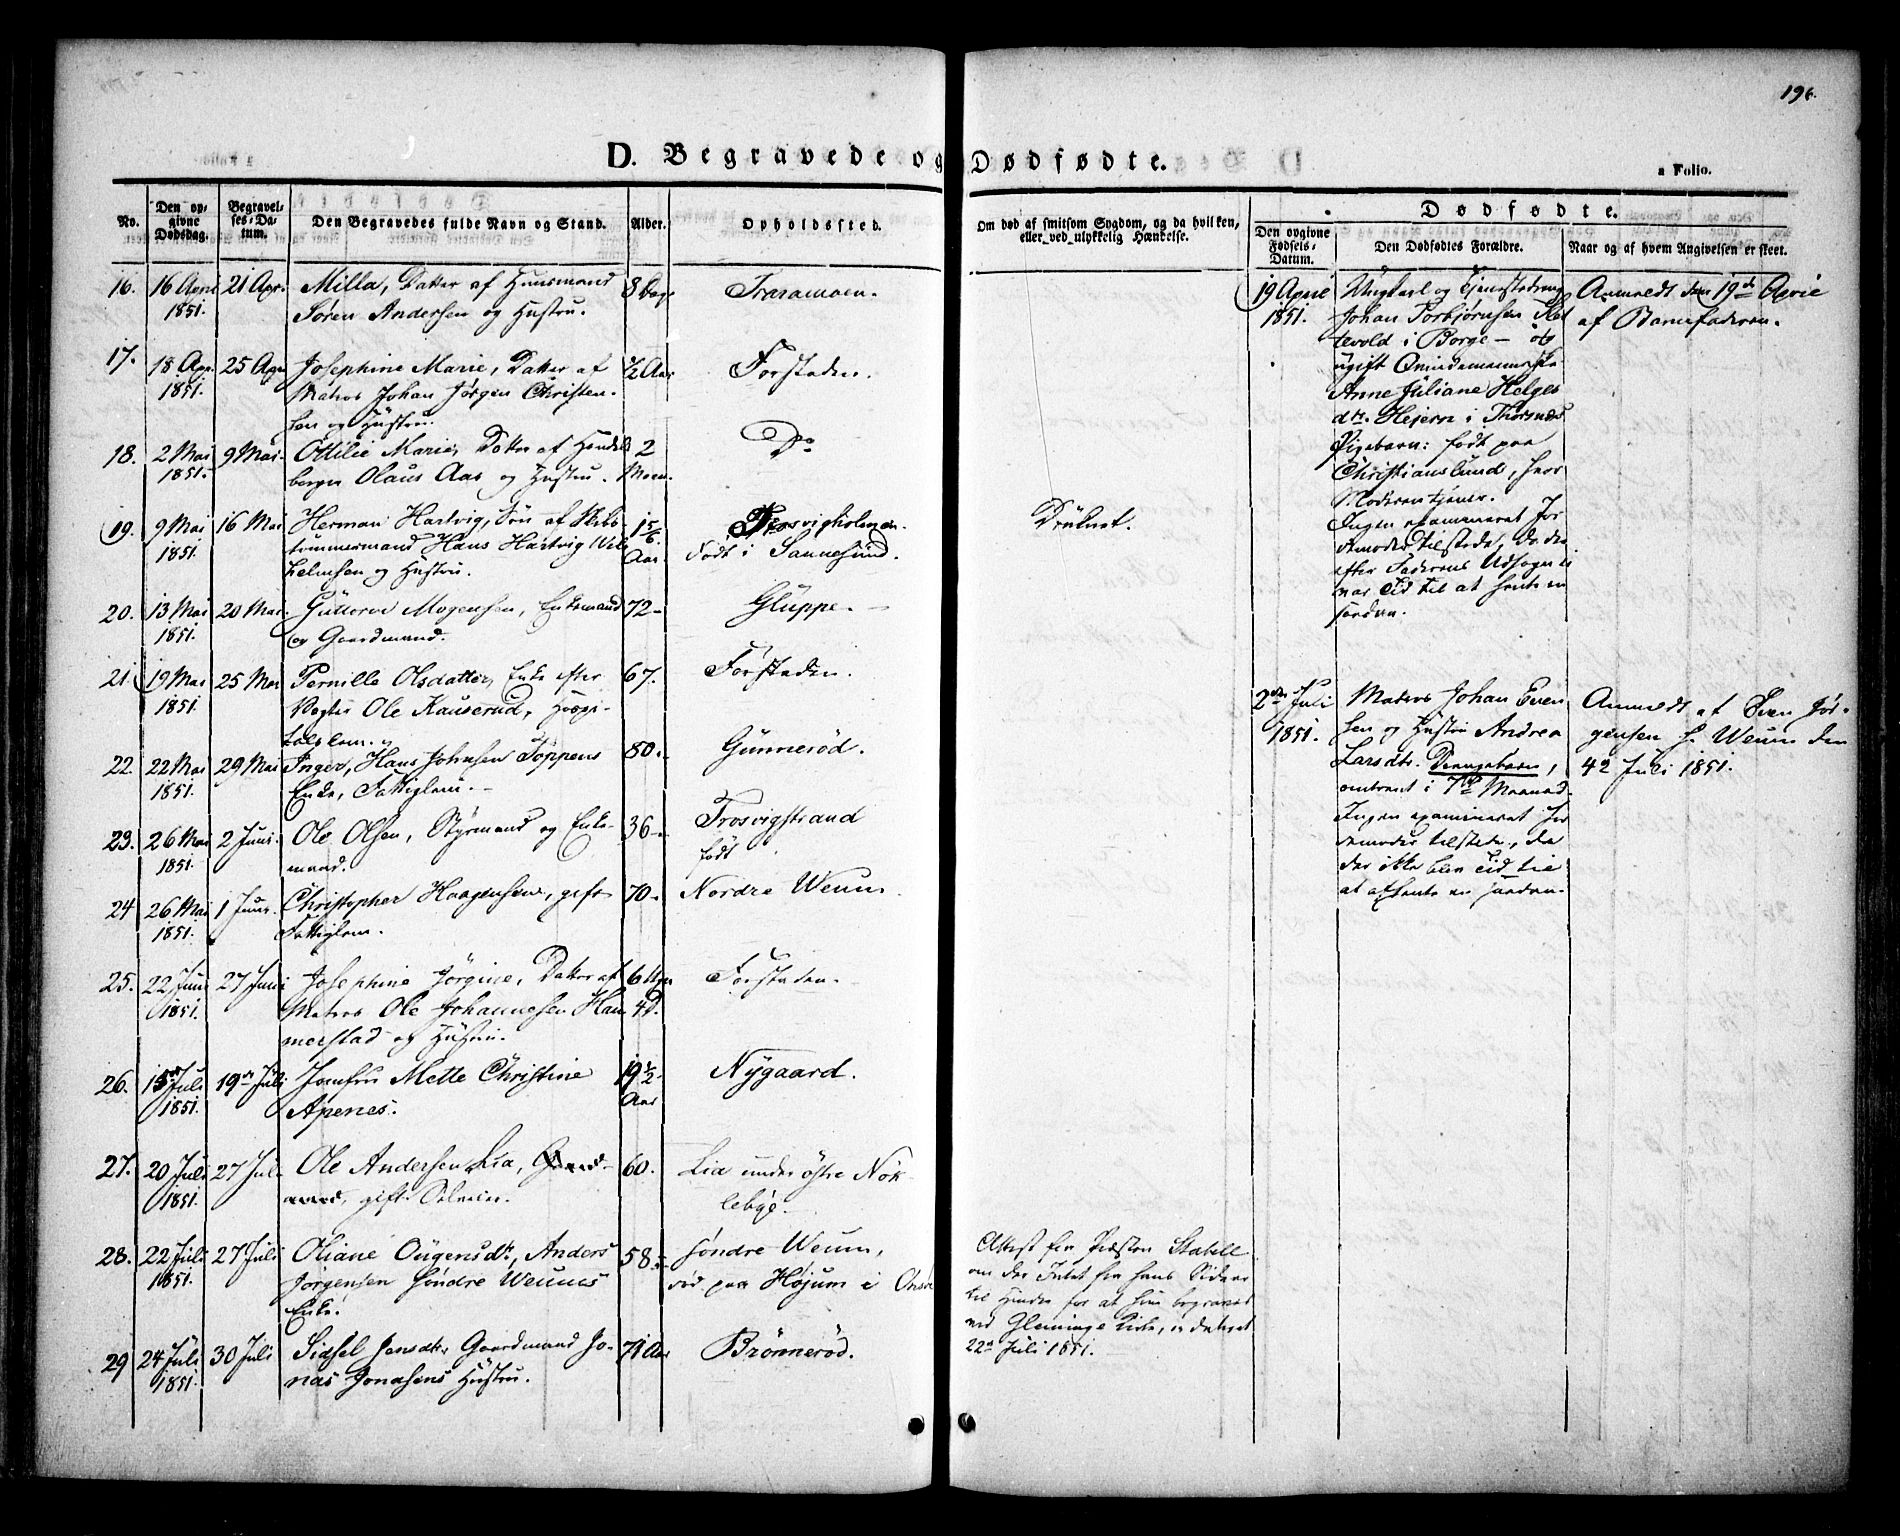 196.
D. Begravede og Dødfødte.
a Folio.
No.
Den op-
givne
Dødsdag.
Begravel-
ses-Da-
tum.
Den Begravedes fulde Navn og Stand.
Alder.
Opholdssted.
Om død af smitsom Sygdom, og da hvilken,
eller ved ulykkelig Hændelse.
Dødfødte.
Den opgivne
Fødsels-
Datum.
Den Dødfødtes Forældre.
Naar og af hvem Angivelsen er skeet.
16. 16 April 21 Apr. Milla, Datter af Huusmand 8 Dage
1851. Søren Andersen og Hustru.
17. 18 Apr. 25 Apr. Josephine Marie, Datter af ½ Aar Forstaden.
1851. Matros Johan Jørgen Christen-
sen og Hustru.
18. 2 Mai 9 Mai. Ottilie Marie, Datter af Handels 2 Do
1851. borger Olaus Aas og Hustru. Maan.
19. 9 Mai 16 Mai Herman Hartvig, Søn af Skibs- 1 5/6 Trosvigholmen. Druknet.
1851. tømmermand Hans Hartvig Wil- Aar. Født i Sannesund.
helmsen og Hustru.
20. 13 Mai 20 Mai. Gutterm Mogensen, Enkemand 72 Gluppe.
1851. og Gaardmand.
21. 19 Mai 25 Mai Pernille Olsdatter, Enke efter 67. Forstaden.
1851. Vægter Ole Kauserud, Hospi-
talslem.
22. 22 Mai 29 Mai Inger, Hans Johnsen Toppens 80. Gunnerød.
1851. Enke, Fattiglem.
23. 26 Mai 2 Juni. Ole Olsen, Styrmand og Enke- 36 Trosvigstrand
1851. mand. født
24 26 Mai 1 Juni. Christopher Haagensen, gift 70 Nordre Weum.
1851. Fattiglem.
25. 22 Juni 27 Juni Josephine Jørgine, Datter af 6 Uger Forstaden.
1851. Matros Ole Johannesen Ham 4 D.
merstad og Hustru.
26. 15de Juli 19de Juli Jomfru Mette Christine 19½ Nygaard.
1851. Apenes. Aar
27. 20 Juli 27 Juli Ole Andersen Lia, Gaard- 60. Lia under østre Nok-
1851. mand, gift Selveier. lebye.
28. 22 Juli 27 Juli Oliane Ougensdtr, Anders 58 Søndre Weum,
1851. Jørgensen Søndre Weums død paa Højum i Onsø
Enke.
Attest fra Præsten Stabell
om der Intet fra hans Side er
til Hinder for at hun begraves
ved Glemminge Kirke, er dateret
22de Juli 1851.
29 24 Juli 30 Juli Sidsel Jensdtr, Gaardmand Jo- 71 Aar Brønnerød.
1851. nas Jonasens Hustru.
19 April Ungkarl og Tjenestedreng Anmeldt den 19de April
1851. Johan Torbjørnsen af Barnefaderen.
i Borge — og
ugift Qvindemenneske
Anne Juliane Helges
dtr. Hejern i Thorsnæs
Pigebarn: født paa
Christianslund, hvor
Moderen tjener.
Ingen examineret Jor
demoder tilstede, da der
efter Faderens Udsagn ei
var Tid til at hente en
saadan.
2den Juli Matros Johan Even Anmeldt af Even Jør-
1851. sen og Hustru Andrea gensen S. Weum den
Larsdtr. Drengebarn, 42 Juli 1851.
omtrent i 7de Maaned.
Ingen examineret Jor
demoder tilstede, da
der ikke blev Tid til
at afhente en saadan.